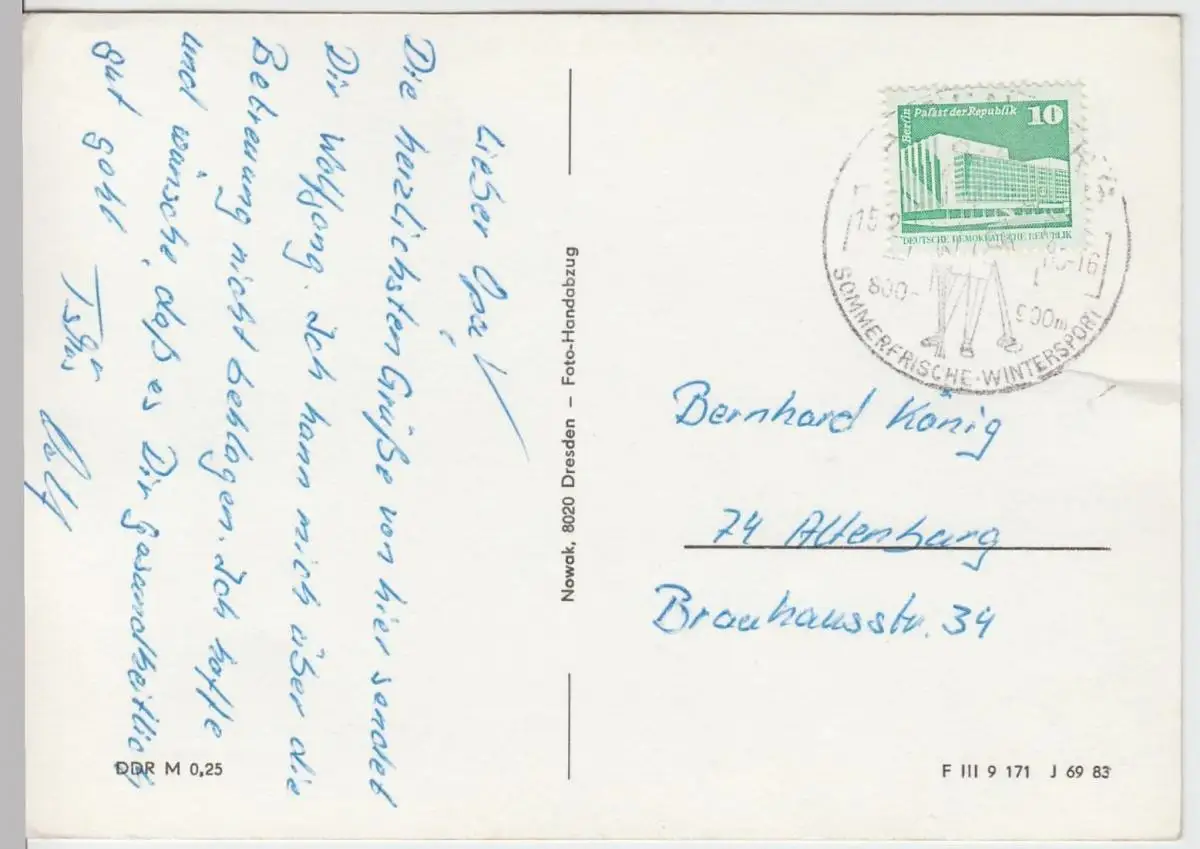 Lieber Opa!
Die herzlichsten Grüße von hier sendet
Dir Wolfgang. Ich kann mich über die
Betreuung nicht beklagen. Ich hoffe
und wünsche, daß es Dir gesundheitlich
gut geht
Tschüs
Nowak, 8020 Dresden – Foto-Handabzug
DDR M 0,25
Berlin Palast der Republik 10
DEUTSCHE DEMOKRATISCHE REPUBLIK
15
-16
800-
900m
SOMMERFRISCHE-WINTERSPORT
Bernhard König
74 Altenburg
Brauhausstr. 34
F III 9 171 J 69 83